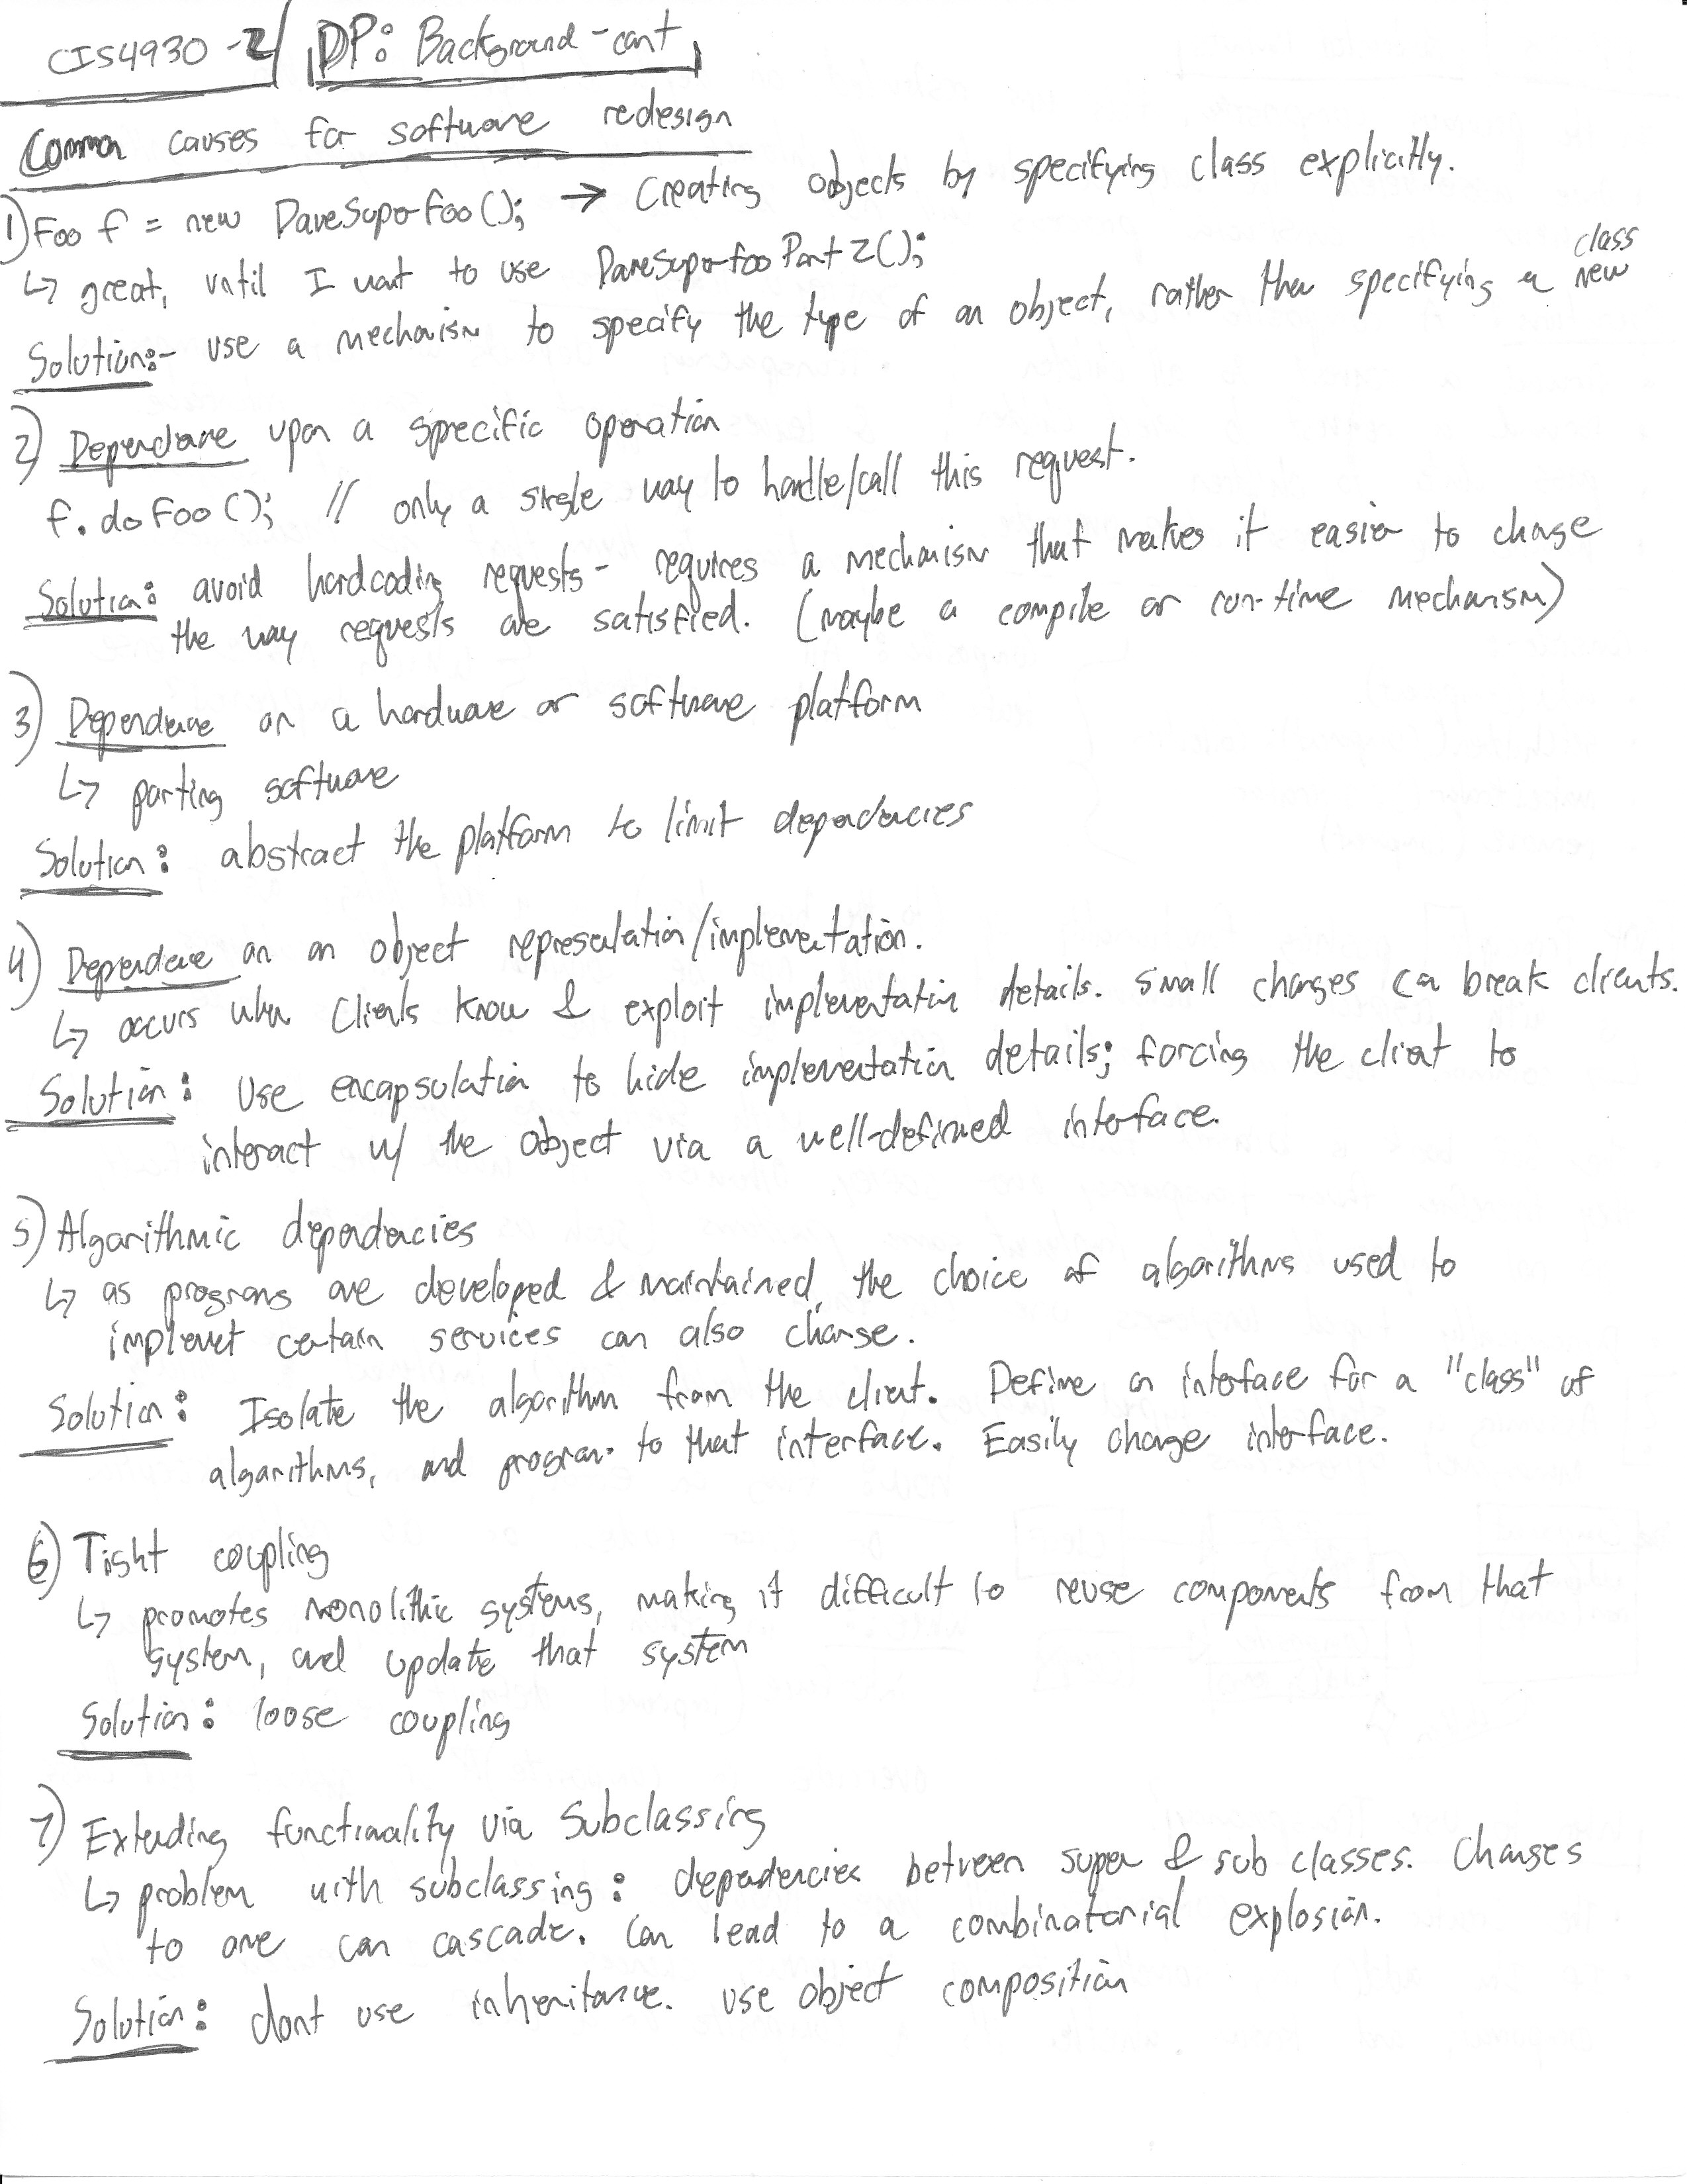 CIS4930-2 DP: Background-cont
Common causes for software redesign
1) Foo f = new DaveSuperFoo(); → Creating objects by specifying class explicitly.
↳ great, until I want to use DaveSuperFooPart2();
class
Solution:- use a mechanism to specify the type of an object, rather than specifying a new
2) Dependence upon a specific operation
f.doFoo(); // only a single way to handle/call this request.
Solution: avoid hardcoding requests - requires a mechanism that makes it easier to change
the way requests are satisfied. (maybe a compile or run-time mechanism)
3) Dependence on a hardware or software platform
↳ porting software
Solution: abstract the platform to limit dependencies
4) Dependence on an object representation/implementation.
↳ occurs when clients know & exploit implementation details. Small changes can break clients.
Solution: Use encapsulation to hide implementation details; forcing the client to
interact w/ the object via a well-defined interface.
5) Algorithmic dependencies
↳ as programs are developed & maintained, the choice of algorithms used to
implement certain services can also change.
Solution: Isolate the algorithm from the client. Define an interface for a "class" of
algorithms, and program to that interface. Easily change interface.
6) Tight coupling
↳ promotes monolithic systems, making it difficult to reuse components from that
system, and update that system
Solution: loose coupling
7) Extending functionality via Subclassing
↳ problem with subclassing: dependencies between super & sub classes. Changes
to one can cascade. Can lead to a combinatorial explosion.
Solution: dont use inheritance. use object composition